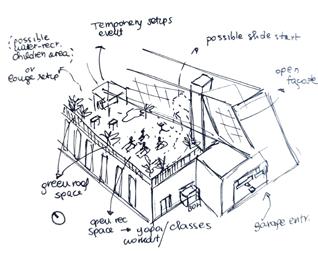 Temporary setups
event
possible slide start
possible
water-recr.
children area
or
louge setup
open
façade
green roof
space
open rec
space → yoga/classes
workout
garage entr.